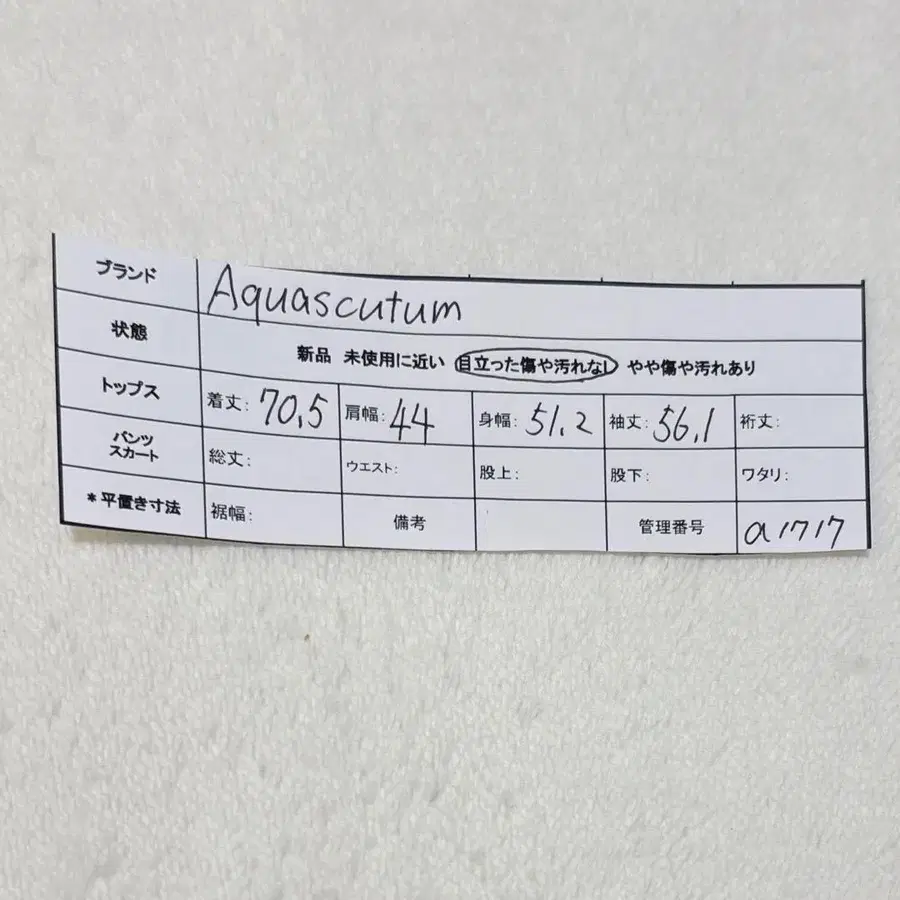 ブランド Aquascutum
状態 新品 未使用に近い 目立った傷や汚れなし やや傷や汚れあり
トップス 着丈: 70.5 肩幅: 44 身幅: 51.2 袖丈: 56.1 裄丈:
パンツ
スカート 総丈: ウエスト: 股上: 股下: ワタリ:
*平置き寸法 裾幅: 備考 管理番号 a1717